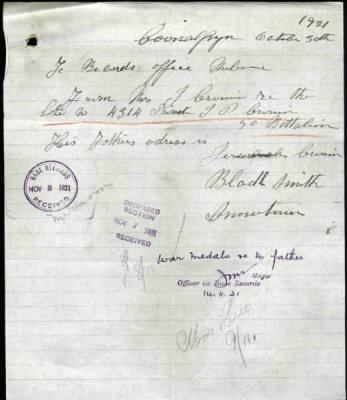 1921
Coonalpyn October 30th
To Records office Melbourne
From Mrs J Cronin re the
late No 4314 Private J P Cronin
50 Battalion
His Fathers adress is Jeremiah Cronin
Black Smith
Snowtown
BASE RECORDS
NOV 2 1921
RECEIVED
DECEASED
SECTION
NOV 7 1921
RECEIVED
War medals re to father
Major
Officer i/c Base Records
14.11.21